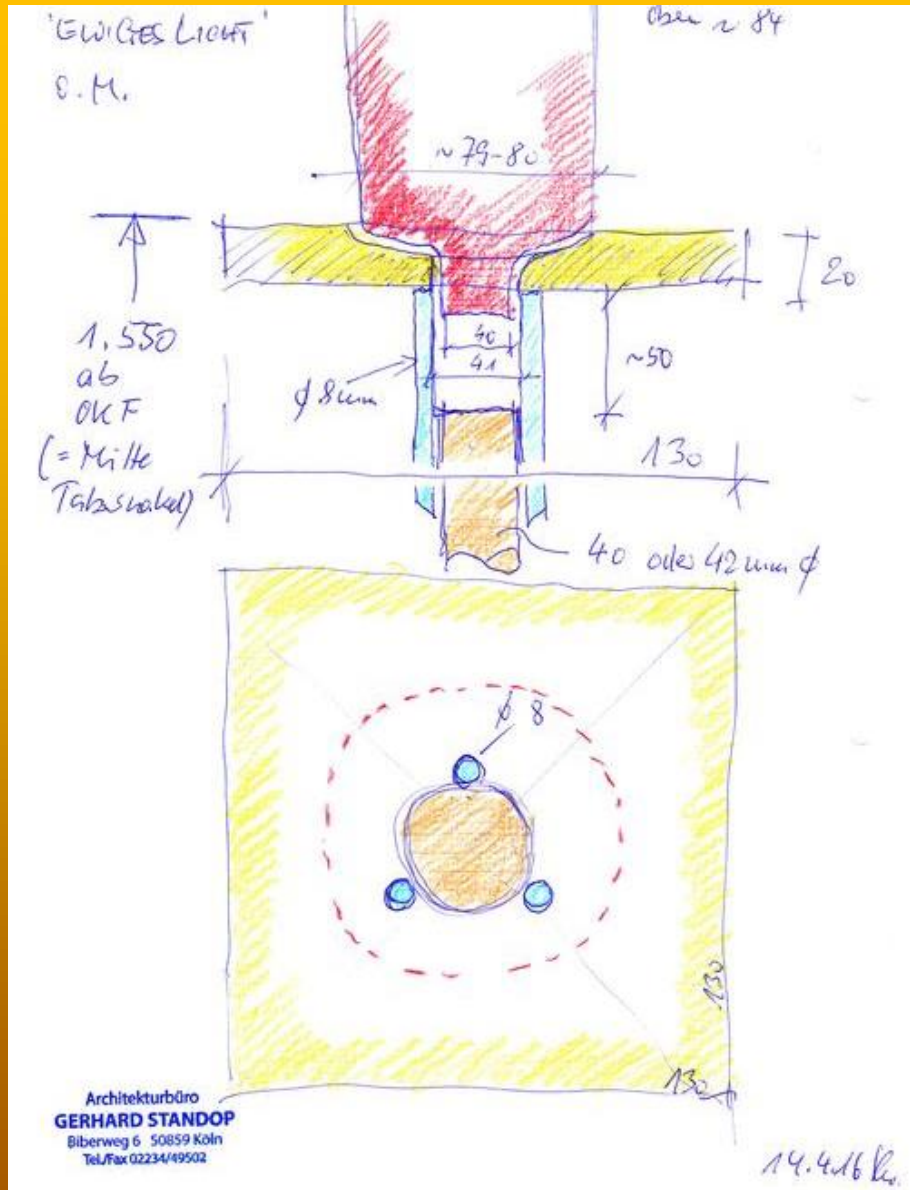 'EWIGES LICHT'
Oben ~ 84
O.M.
~ 79-80
20
1.550
ab
OKF
(= Mitte
Tabernakel)
40
41
~50
ϕ 8mm
130
40 oder 42mm ϕ
ϕ 8
130
130
Architekturbüro
GERHARD STANDOP
Biberweg 6 50859 Köln
Tel./Fax 02234/49502
14.4.16